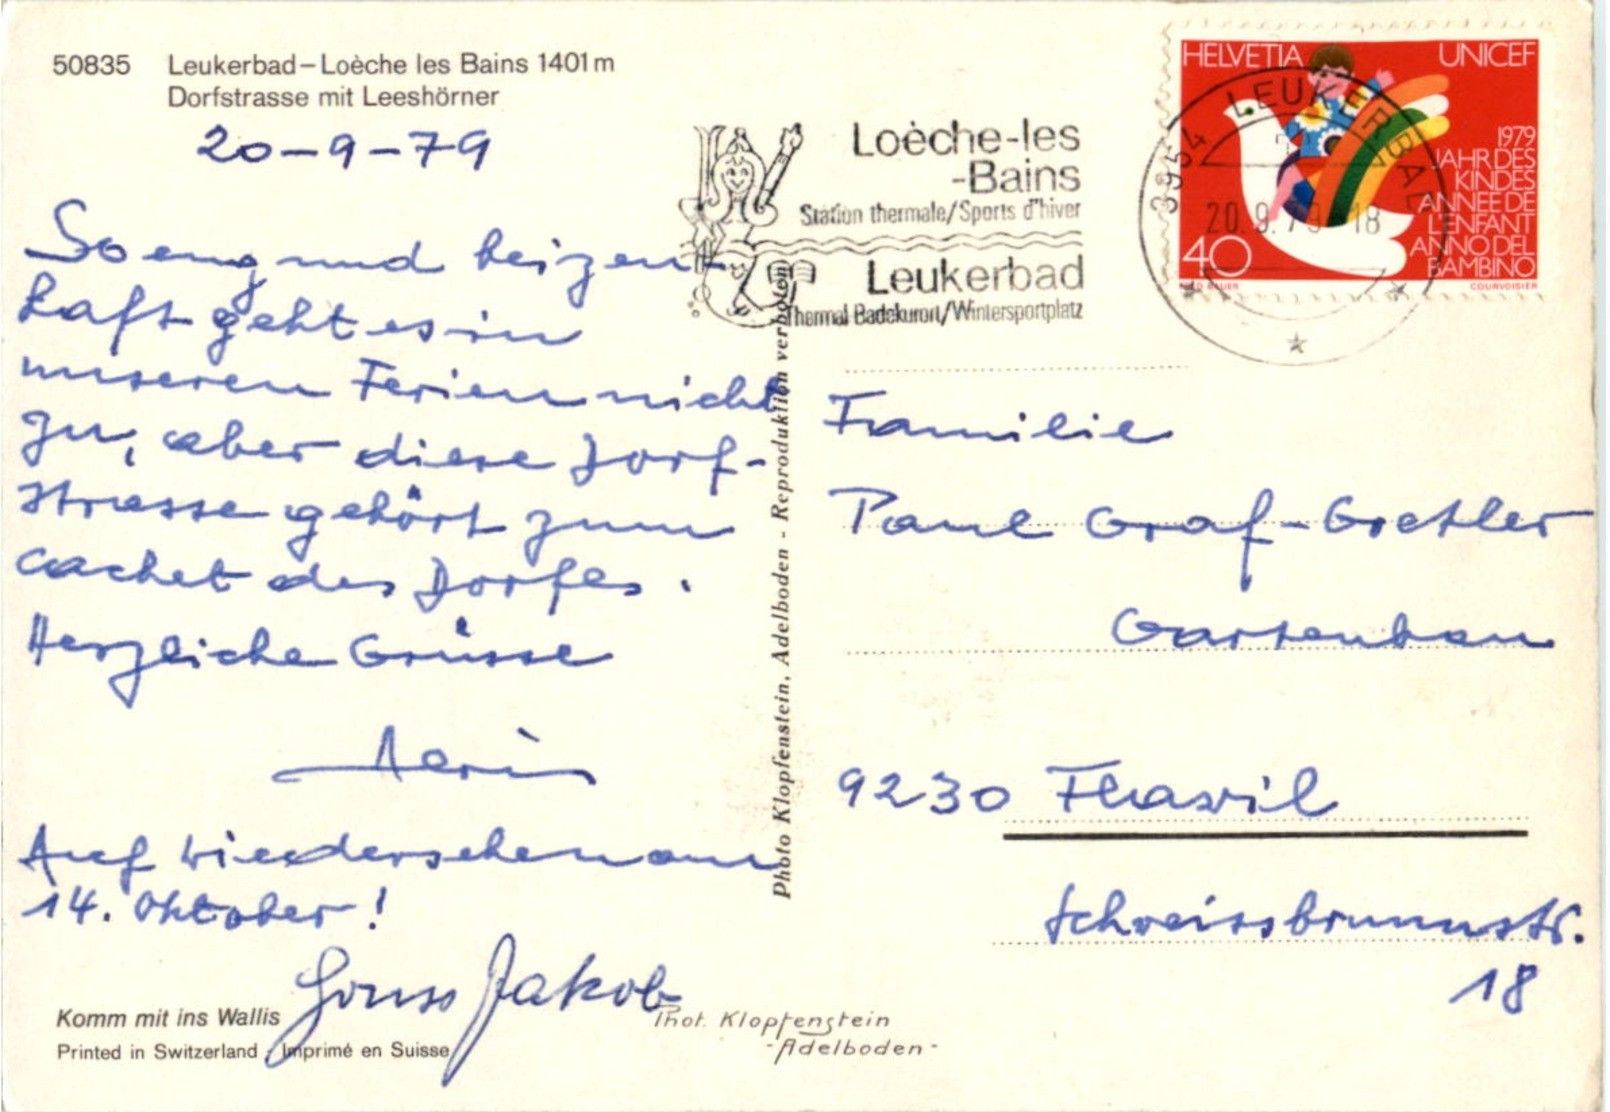 50835 Leukerbad–Loèche les Bains 1401 m
Dorfstrasse mit Leeshörner
20-9-79
So eng und beizen-
haft geht es in
unseren Ferien nicht
zu, aber diese Dorf-
strasse gehört zum
cachet des Dorfes.
Herzliche Grüsse
Auf Wiedersehen am
14. Oktober!
Jakob
Komm mit ins Wallis
Printed in Switzerland - Imprimé en Suisse
Phot. Klopfenstein
-Adelboden-
Photo Klopfenstein, Adelboden - Reproduktion verboten
Loèche-les
-Bains
Station thermale/Sports d'hiver
Leukerbad
Thermal Badekurort/Wintersportplatz
3954 LEUKERBAD
20.9.79-18
HELVETIA UNICEF
1979
JAHR DES
KINDES
ANNEE DE
L'ENFANT
ANNO DEL
BAMBINO
40
COURVOISIER
Familie
Paul Graf-Gretler
Gartenbau
9230 Flawil
Schweissbrunnstr.
18